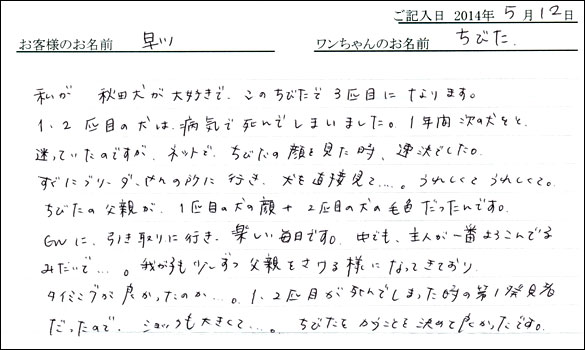 ご記入日 2014年 5月12日
お客様のお名前 早川 ワンちゃんのお名前 ちびた
私が 秋田犬が大好きで、このちびたで3匹目になります。
1、2匹目の犬は、病気で死んでしまいました。1年間次の犬をと
迷っていたのですが、ネットで、ちびたの顔を見た時、速決でした。
すぐにブリーダーさんの所に行き、犬を直接見て…。うれしくてうれしくて。
ちびたの父親が、1匹目の犬の顔+2匹目の犬の毛色だったんです。
GWに、引き取りに行き、楽しい毎日です。中でも、主人が一番よろこんでる
みたいで…。我が子も少しずつ父親をさわる様になってきており
タイミングが良かったのか…。1、2匹目が死んでしまった時の第1発見者
だったので、ショックも大きくて…。ちびたをかうことを決めて良かったです。